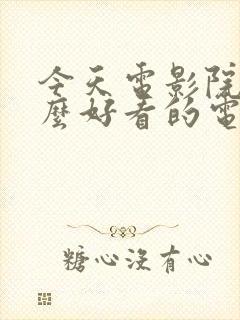 今天電影院
麼好看的電
糖心沒有心